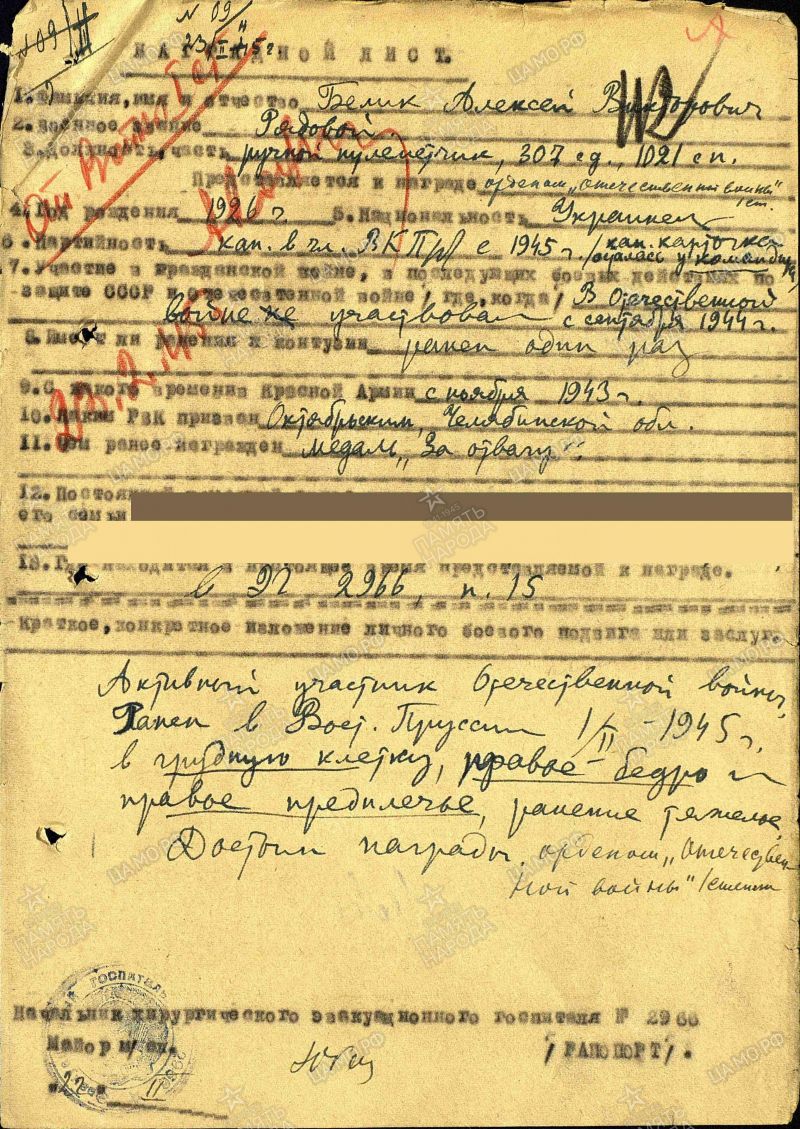 N 09
23/II 45 г
N 09/II
НАГРАДНОЙ ЛИСТ.
112
1. Фамилия, имя и отчество Белик Алексей Викторович
2. Военное звание Рядовой.
3. Должность, часть ручной пулеметчик, 307 сд., 1021 сп.
Представляется к награде орденом „Отечественной войны" I ст.
4. Год рождения 1926 г. 5. Национальность Украинец
6. Партийность кан. в чл. ВКП(б) с 1945 г. /кан. карточка осталась у командира/
7. Участие в гражданской войне, в последующих боевых действиях по
защите СССР и отечественной войне / где, когда / В Отечественной
войне участвовал с сентября 1944 г.
8. Имеет ли ранения и контузии ранен один раз
9. С какого времени Красной Армии с ноября 1943 г.
10. Каким РВК призван Октябрьским, Челябинской обл.
11. Чем ранее награжден медаль „За отвагу".
23.2.45
12. Постоянный
его семьи
13. Где находится в настоящее время представляемой к награде.
в ЭГ 2966, п. 15
Краткое, конкретное изложение личного боевого подвига или заслуг.
Активный участник Отечественной войны,
Ранен в Вост. Пруссии 1/II - 1945 г.
в грудную клетку, правое бедро и
правое предплечье, ранение тяжелое.
Достоин награды орденом „Отечествен
ной войны" I степени
ГОСПИТАЛЬ
Начальник хирургического эвакуационного госпиталя № 2966
Майор м/сл. /РАПОПОРТ/.
II